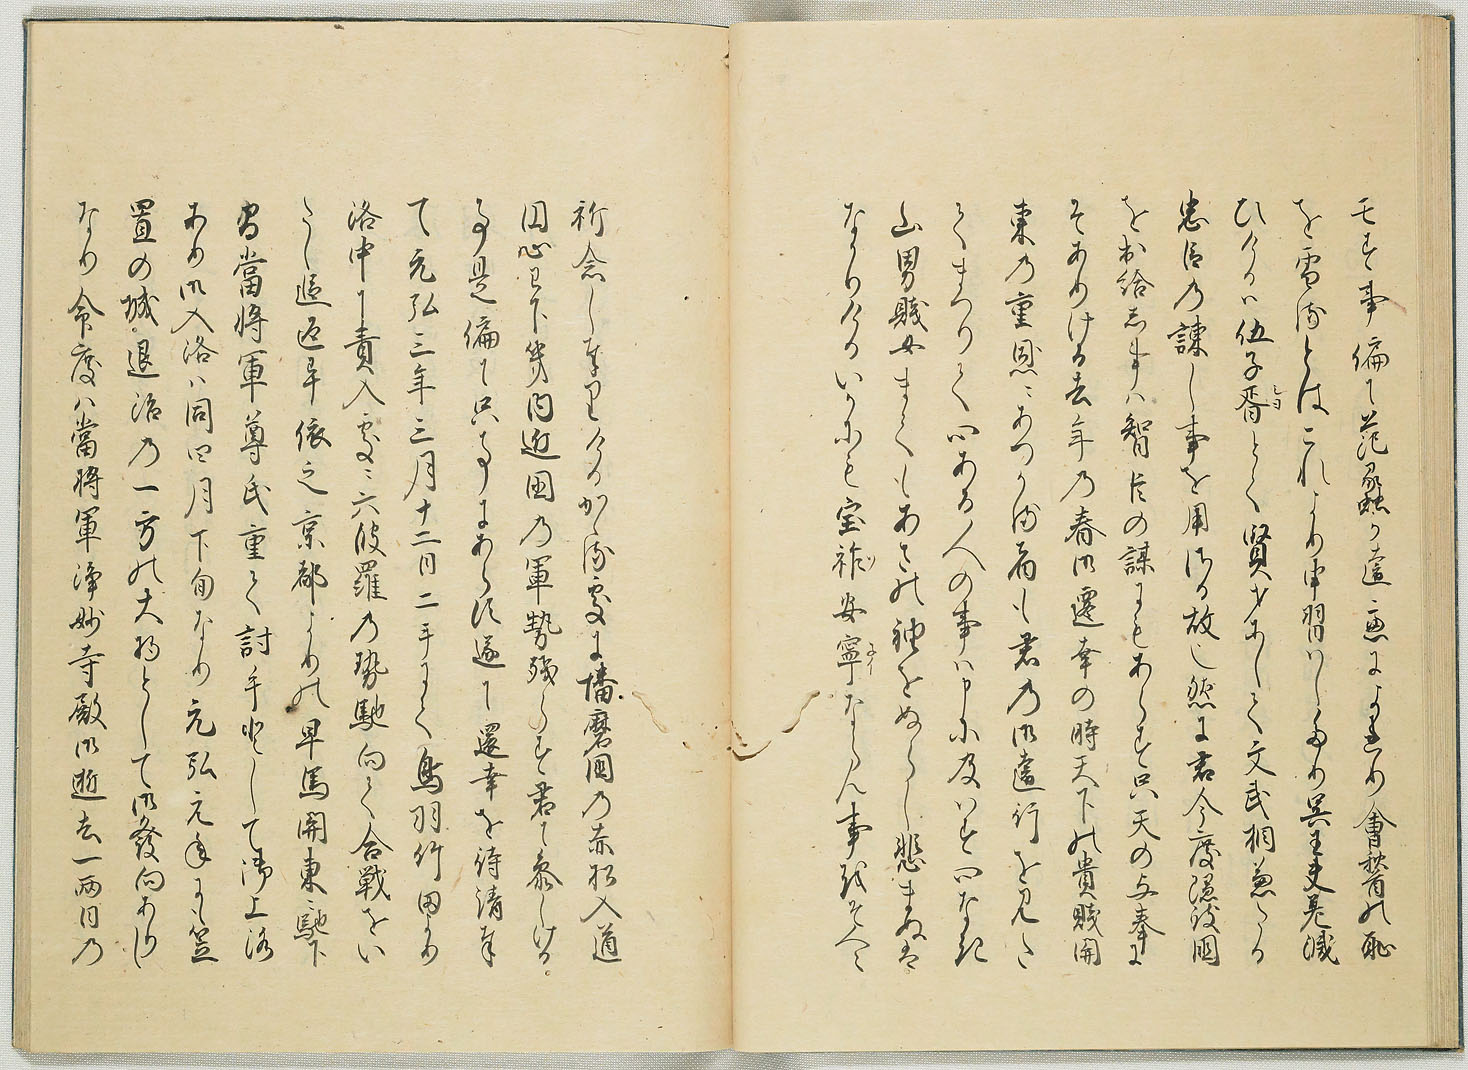 亡す事偏に范蠡か遠慮によれり會稽の恥
を雪るとはこれより申習はしたり呉王夫差滅
ひけるは伍子胥とて賢才ありて文武相兼たる
忠臣の諫し事を用さる故也然に君今度隠岐国
を出給ひし事は智臣の謀にもあらす只天の与奉に
そありける去年の春御遷幸の時天下の貴賤関
東の重恩にあつかる者も君の御遠行を見た
てまつりて心ある人の事は申に及はす心なき
山男賤女まても あさの袖をぬらし悲まぬは
なかりけりいかにも宝祚安寧ならん事をそ人々
祈念し奉りけるかゝる處に播磨国の赤松入道
円心已下畿内近国の軍勢残らす君に参しける
事是偏に只事にあらす遂に還幸を待請奉
て元弘三年三月十二日二手にて鳥羽竹田より
洛中に責入處に六波羅の勢馳向て合戦をい
たし追返畢依之京都よりの早馬関東に馳下
間當将軍尊氏重て討手として御上洛
あり御入洛は同四月下旬なり元弘元年にも笠
置の城退治の一方の大将として御發向ありし
なり今度は當将軍浄妙寺殿御逝去一両月の